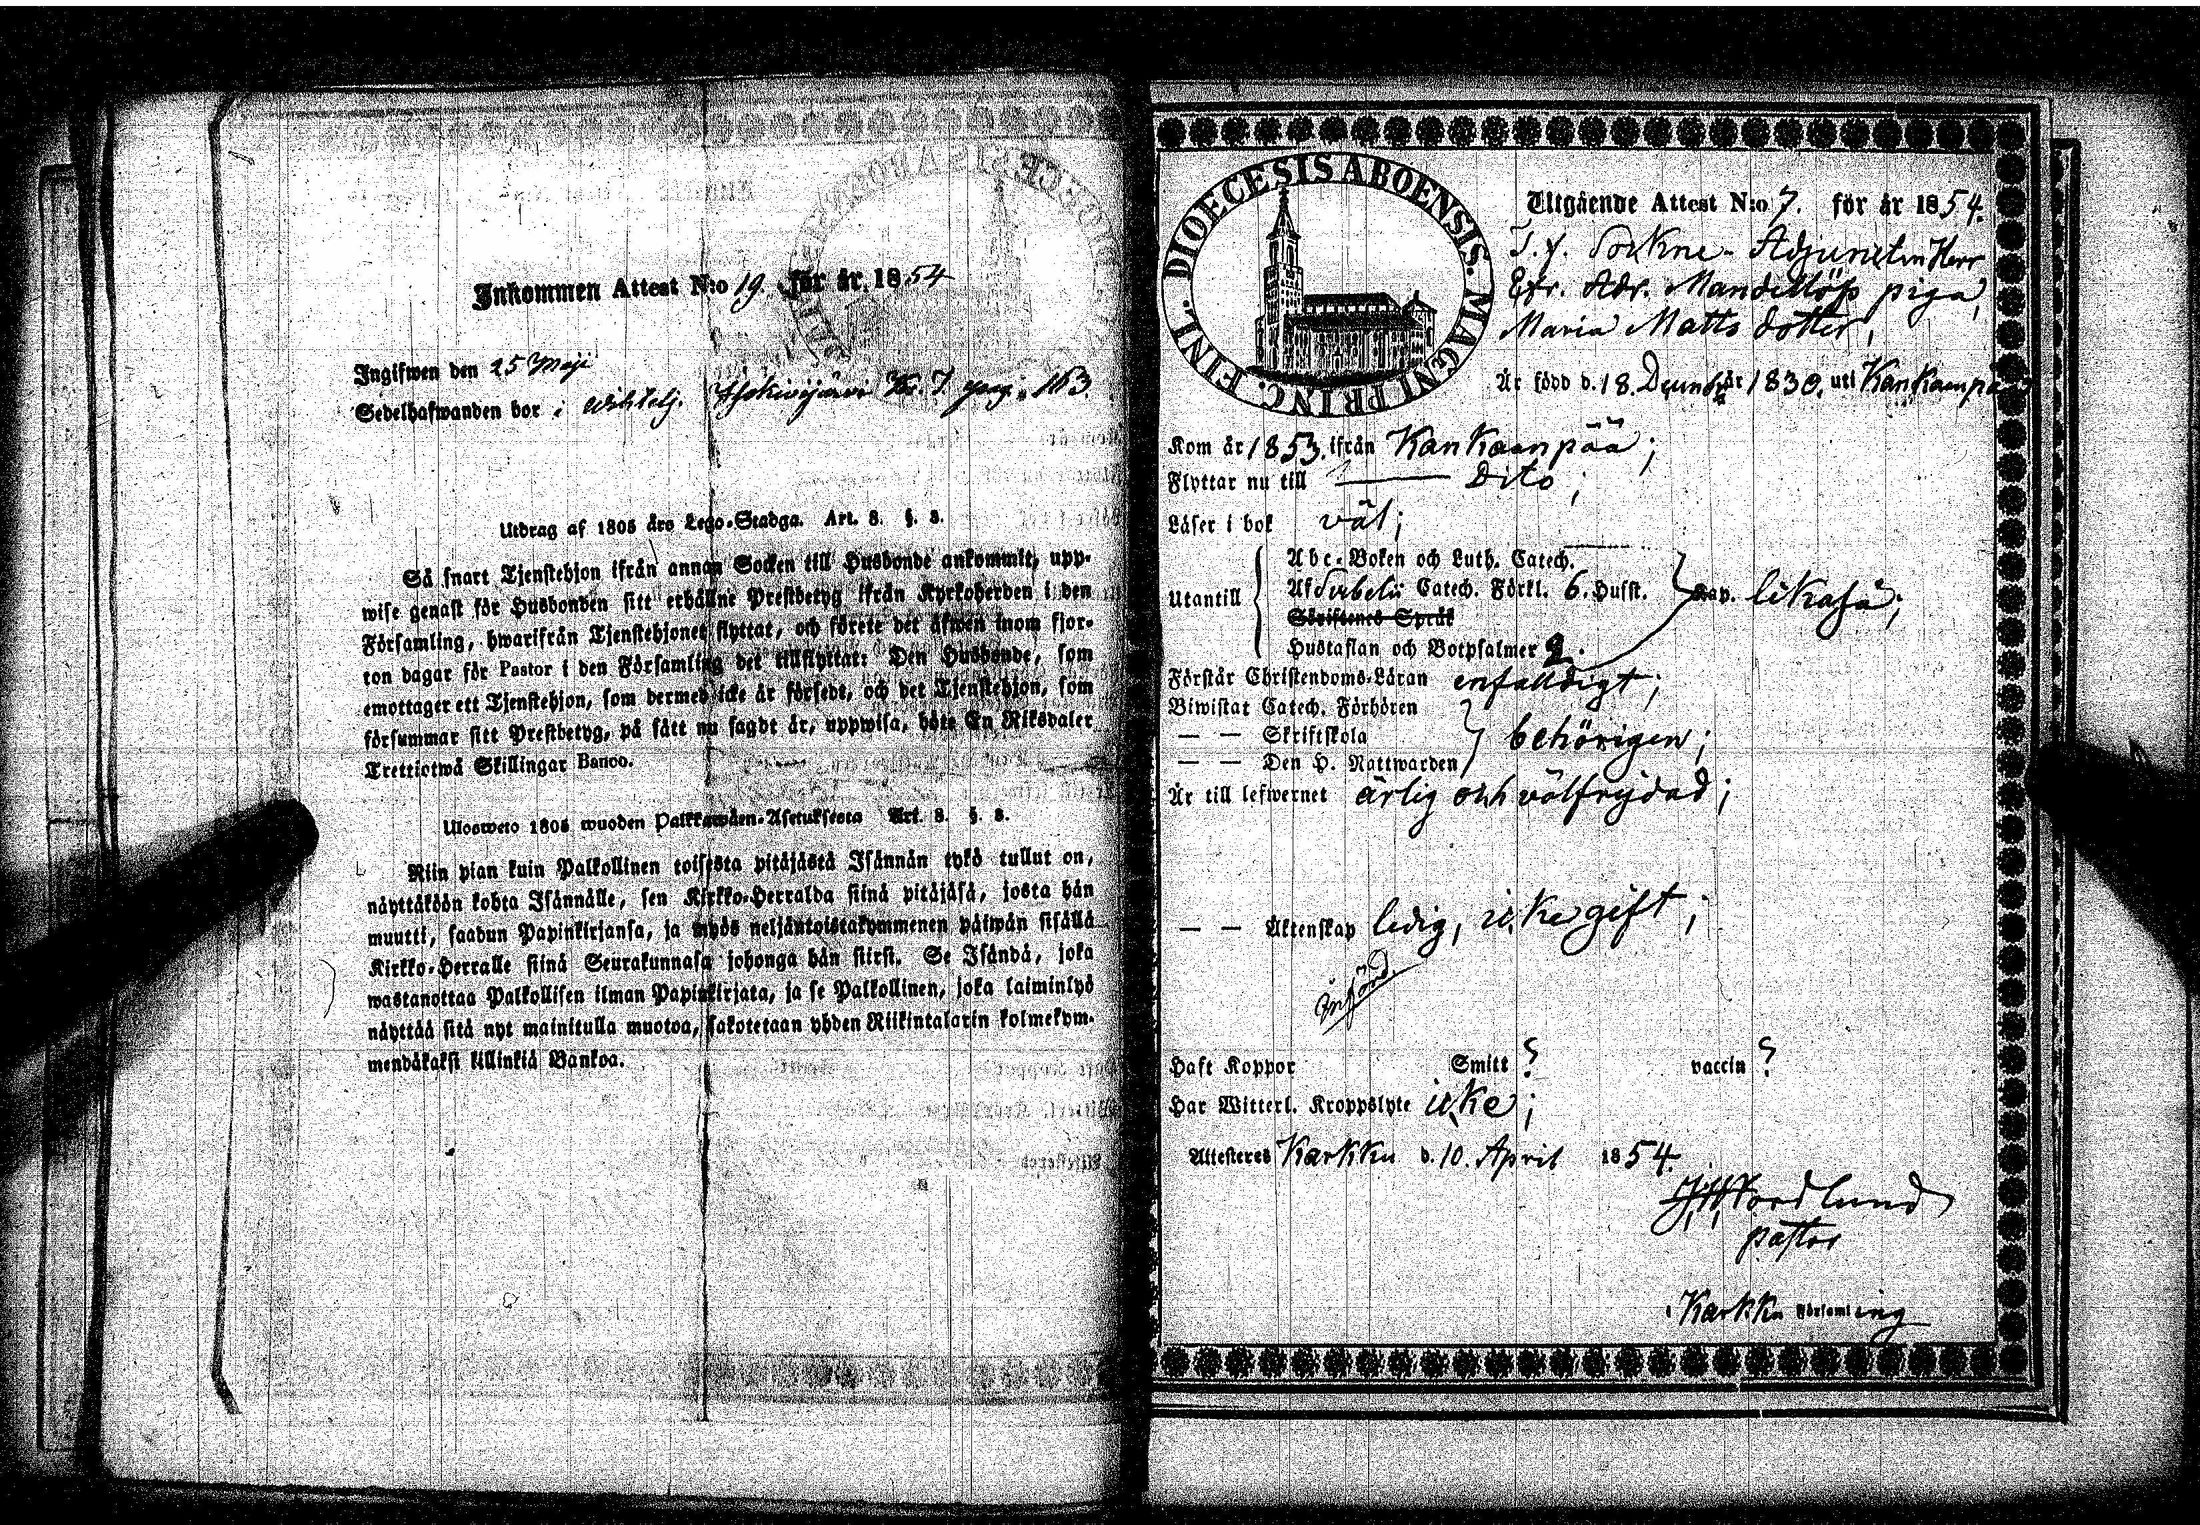 Inkommen Attest N:o 19. för år 1854
Ingifwen den 25 Maji
Sedelhafwanden bor i 163.
Utdrag af 1805 års Lego-Stadga. Art. 8. §. 8.
Så snart Tjenstehjon ifrån annan Socken till Husbonde ankommit, upp-
wise genast för Husbonden sitt erhållne Prestbetyg ifrån Kyrkoherden i den
Församling, hwarifrån Tjenstehjonet flyttat, och förete det äfwen inom fjor-
ton dagar för Pastor i den Församling det tillflyttat: Den Husbonde, som
emottager ett Tjenstehjon, som dermed icke är försedt, och det Tjenstehjon, som
försummar sitt Prestbetyg, på sätt nu sagdt är, uppwisa, böte En Riksdaler
Trettiotwå Skillingar Banco.
Ulosweto 1805 wuoden Palkkawäen-Asetuksesta Art. 8. §. 8.
Niin pian kuin Palkollinen toisesta pitäjästä Isännän tykö tullut on,
näyttäköön kohta Isännälle, sen Kirkko-Herralda siinä pitäjäsä, josta hän
muutti, saadun Papinkirjansa, ja myös neljäntoistakymmenen päiwän sisällä
Kirkko-Herralle siinä Seurakunnasa johonga hän siirsi. Se Isändä, joka
wastanottaa Palkollisen ilman Papinkirjata, ja se Palkollinen, joka laiminlyö
näyttää sitä nyt mainitulla muotoa, sakotetaan yhden Riikintalarin kolmekym-
mendäkaksi killinkiä Bankoa.
DIOECESIS ABOENSIS. MAGNI PRINC. FINL.
Utgående Attest N:o 7. för år 1854.
Sockne-Adjuncten Herr
Efr. Adr. Mandellöfs piga,
Maria Matts dotter,
Är född d. 18. Decemb. år 1830. uti Kankaanpää
Kom år 1853. ifrån Kankaanpää;
Flyttar nu till — Dito;
Läser i bok väl;
Utantill
Abc-Boken och Luth. Catech.
Af Svebelii Catech. Förkl. 6. Hufst.
Skriftenes Språk
Hustaflan och Botpsalmer 2.
Kap. likaså;
Förstår Christendoms-Läran enfaldigt;
Biwistat Catech. Förhören
— — Skriftskola
— — Den H. Nattwarden
behörigen;
Är till lefwernet ärlig och välfrejdad;
— — Äktenskap ledig, icke gift;
Införd.
Haft Koppor Smitt ? vaccin ?
Har Witterl. Kroppslyte icke;
Attesteres Karkku d. 10. April 1854.
Nordlund
pastor
i Karkku Församling